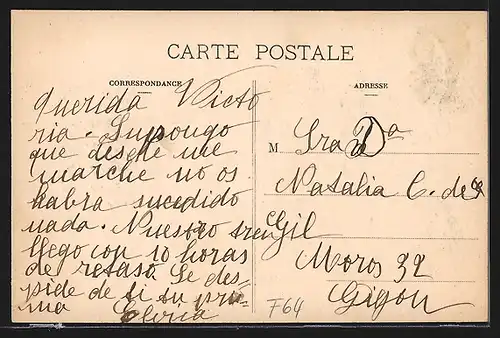 CARTE POSTALE
CORRESPONDANCE
ADRESSE
Querida Victo
ria. Supongo
que desde me
marche no os
habra sucedido
nada. Nuestro tren
llego con 10 horas
de retaso Se des-
pide de ti tu pri-
ma
M. Sra Da
Natalia C. de
Gil
Moros 32
Gigon
F64